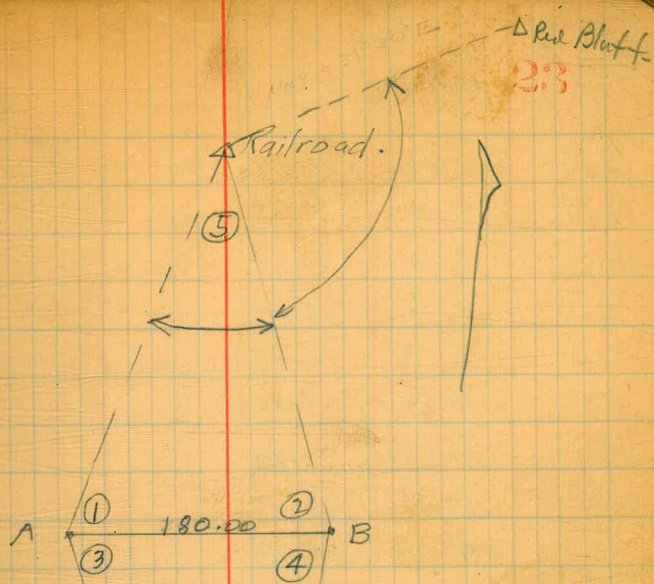 Δ Red Bluff
23
Δ Railroad.
5
1 2
A 180.00 B
3 4